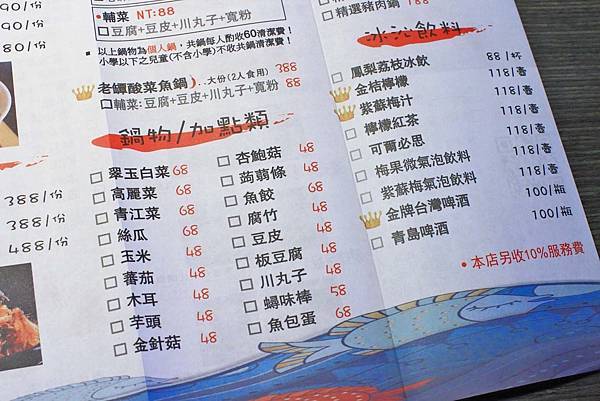 90/份
90/份
80/份
388/份
388/份
488/份
•輔菜 NT:88
□豆腐+豆皮+川丸子+寬粉
•以上鍋物為個人鍋,共鍋每人酌收60清潔費!
小學以下之兒童(不含小學)不收共鍋清潔費!
老罈酸菜魚鍋..大份(2人食用) 388
□輔菜:豆腐+豆皮+川丸子+寬粉 88
鍋物/加點類
□翠玉白菜 68
□高麗菜 68
□青江菜 68
□絲瓜 68
□玉米 48
□蕃茄 48
□木耳 48
□芋頭 48
□金針菇 48
□杏鮑菇 48
□蒟蒻條 48
□魚餃 68
□腐竹 48
□豆皮 48
□板豆腐 48
□川丸子 48
□蟳味棒 58
□魚包蛋 68
□精選豬肉鍋 188
冰沁飲料
□鳳梨荔枝冰飲 88/杯
□金桔檸檬 118/壺
□紫蘇梅汁 118/壺
□檸檬紅茶 118/壺
□可爾必思 118/壺
□梅果微氣泡飲料 118/壺
□紫蘇梅氣泡飲料 118/壺
□金牌台灣啤酒 100/瓶
□青島啤酒 100/瓶
•本店另收10%服務費